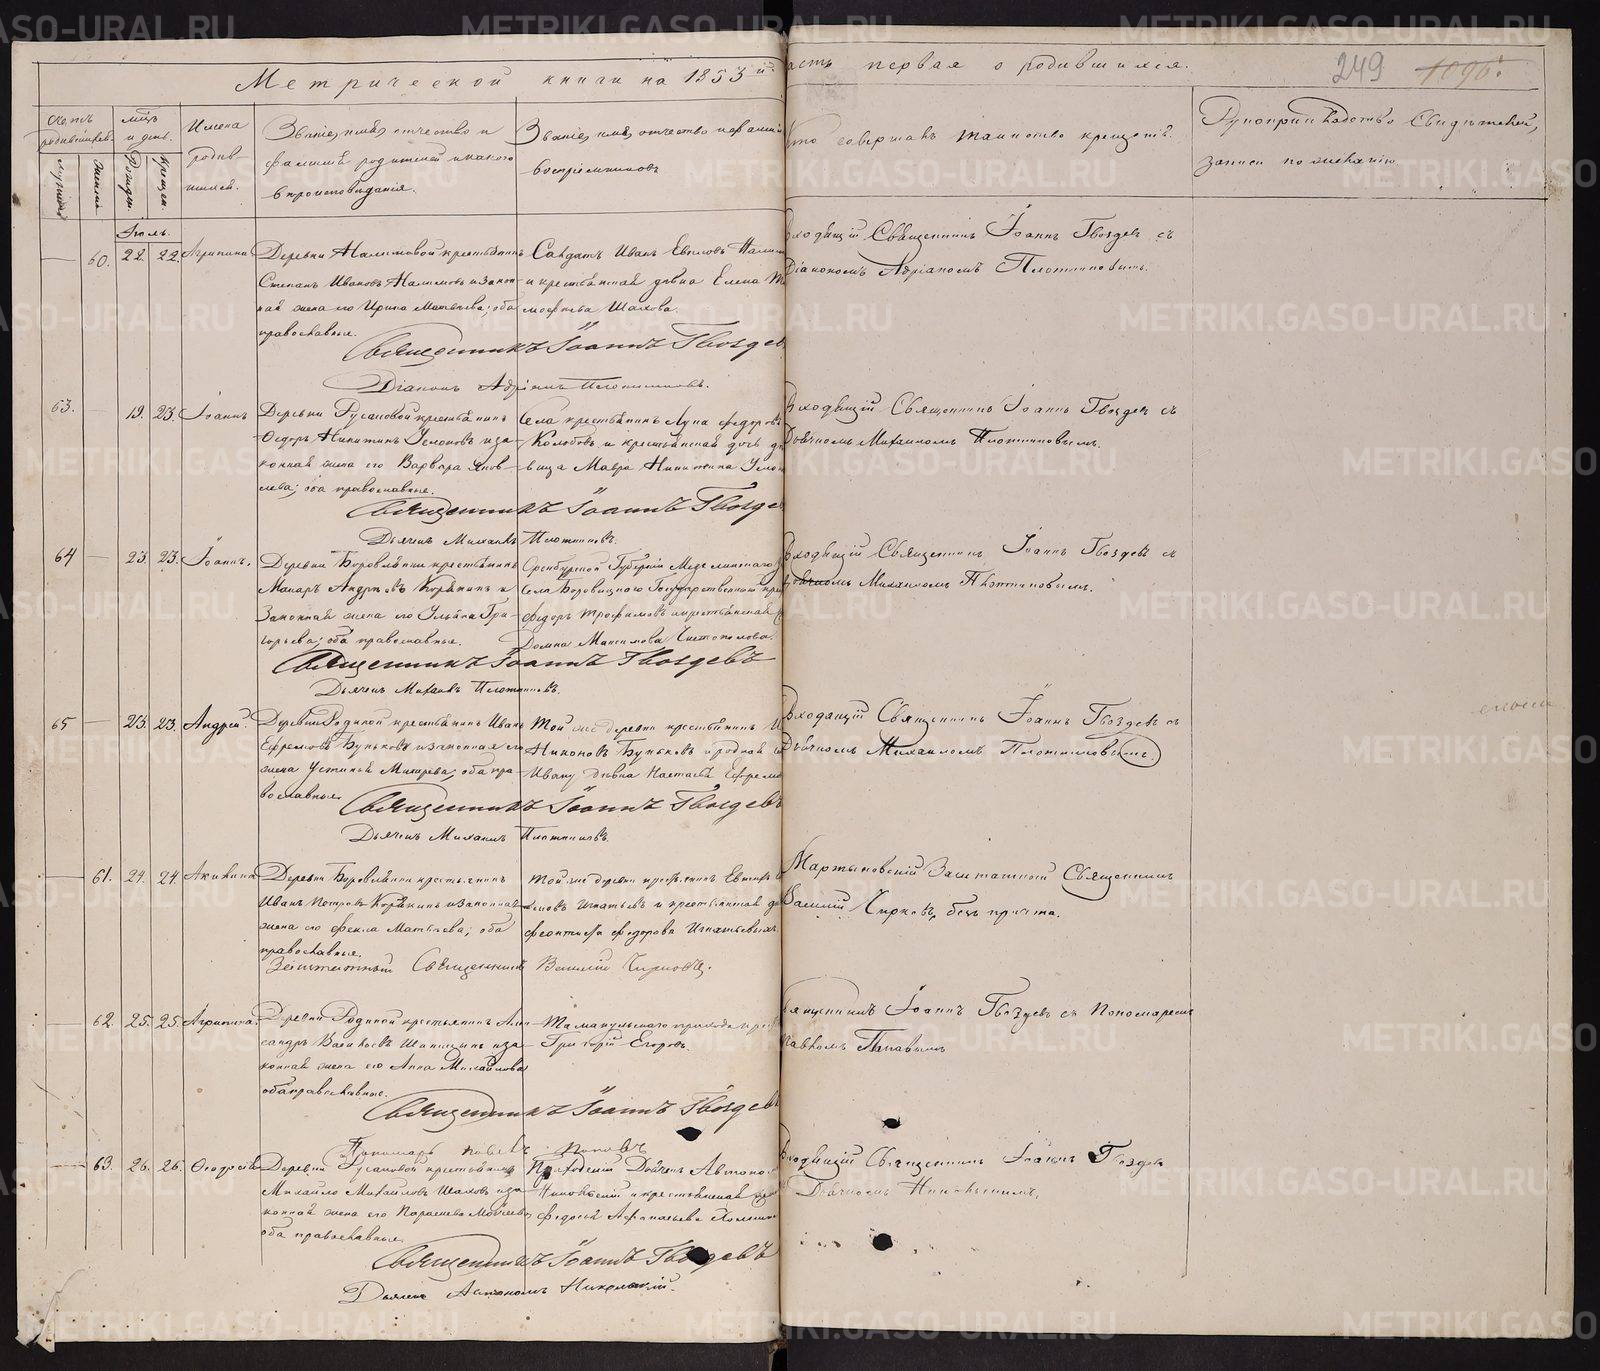 Метрической книги на 1853й
часть первая о родившихся.
249
1096.
Имена
родив-
шихся.
Званіе, имя, отчество и
фамилія родителей и какого
вѣроисповѣданія.
Званіе, имя, отчество и фамилія
воспріемниковъ
Кто совершалъ таинство крещенія.
Рукоприкладство свидѣтелей,
записи по желанію
Мужеска
Женска
Рожден.
Крещен.
Іюль.
60. 22. 22. Агрипина
Деревни Налимовой крестьянинъ
Степанъ Ивановъ Налимовъ и закон-
ная жена его Ирина Матвѣева; оба
православные.
Солдатъ Иванъ
и крестьянская дѣвка Елена
Шахова.
Приходскій Священникъ Іоаннъ Гвоздевъ съ
Діакономъ Адріаномъ Плотниковымъ.
Священникъ Іоаннъ Гвоздевъ
Діаконъ Адріанъ Плотниковъ.
63. 19. 23. Іоаннъ
Деревни Русановой крестьянинъ
Ѳедоръ Никитинъ и за-
конная жена его Варвара Яков-
лева; оба православные.
Села крестьянинъ Лука Федоровъ
Колобовъ и крестьянская дочь дѣ-
вица Мавра Никитина
Приходскій Священникъ Іоаннъ Гвоздевъ съ
Дьячкомъ Михаиломъ Плотниковымъ.
Священникъ Іоаннъ Гвоздевъ
Дьячекъ Михаилъ Плотниковъ.
64 23. 23. Іоаннъ.
Деревни Боровлянки крестьянинъ
Макаръ Андреевъ Корякинъ и
Законная жена его Ульяна Гри-
горьева; оба православные.
Оренбургской Губерніи
Села Боровицкаго Государственный
Федоръ Трофимовъ и крестьянская
Домна Максимова
Приходскій Священникъ Іоаннъ Гвоздевъ съ
Дьячкомъ Михаиломъ Плотниковымъ.
Священникъ Іоаннъ Гвоздевъ
Дьячекъ Михаилъ Плотниковъ.
65 23. 23. Андрей.
Деревни Родиной крестьянинъ Иванъ
Ефремовъ Буньковъ и законная его
жена Устинья Макарова; оба пра-
вославные
Той же деревни крестьянинъ
Никоновъ Буньковъ и родная
Ивану дѣвка Настасья Ефремова
Приходящій Священникъ Іоаннъ Гвоздевъ съ
Дьячкомъ Михаиломъ Плотниковымъ.
Священникъ Іоаннъ Гвоздевъ
Дьячекъ Михаилъ Плотниковъ.
61. 24. 24. Акилина
Деревни Боровлянки крестьянинъ
Иванъ Петровъ Корякинъ и законная
жена его Фекла Матвѣева; оба
православные.
Той же деревни крестьянинъ
Игнатьевъ и крестьянская
Федорова Игнатьевыхъ.
Мартыновскій Заштатный Священникъ
Василій Чирковъ, безъ причта.
Заштатный Священникъ Василій Чирковъ.
62. 25. 25. Агрипина.
Деревни Родиной крестьянинъ Алек-
сандръ Васильевъ и за-
конная жена его Анна Михайлова
оба православные.
Тамакульскаго прихода
Григорій Егоровъ.
Священникъ Іоаннъ Гвоздевъ съ Пономаремъ
Павломъ Поповымъ
Священникъ Іоаннъ Гвоздевъ
Пономарь Павелъ Поповъ
63. 26. 26. Ѳеодосія
Деревни Русановой крестьянинъ
Михайло Михайловъ Шаховъ и за-
конная жена его Парасковья
оба православные.
Приходскій Дьячекъ Автономъ
Никольскій и крестьянская
Федосья Афанасьева
Приходскій Священникъ Іоаннъ Гвоздевъ
Дьячкомъ Никольскимъ.
Священникъ Іоаннъ Гвоздевъ
Дьячекъ Автономъ Никольскій.
METRIKI.GASO-URAL.RU